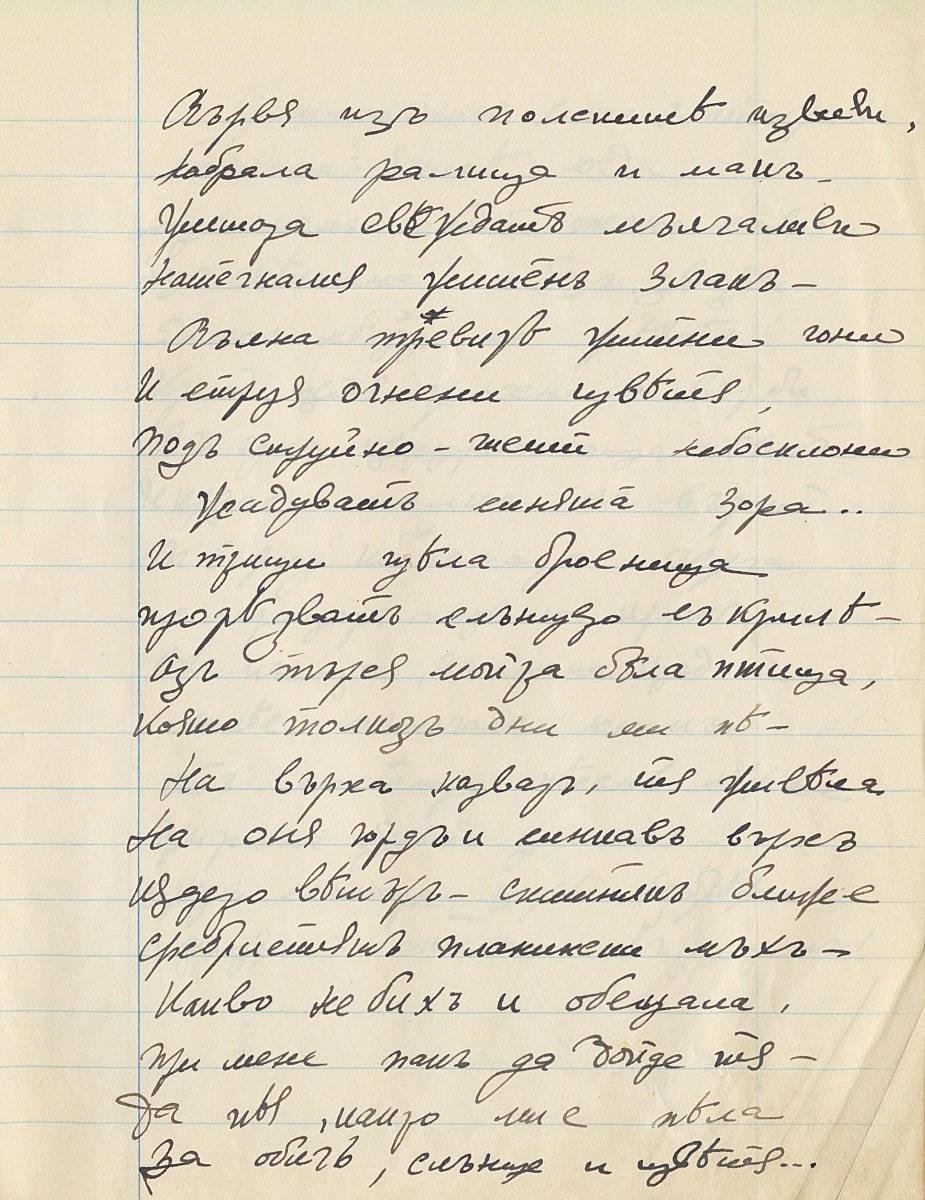 Вървя изъ полскитѣ извиви,
набрала ралица и макъ –
Жътоза свѣждатъ мълчаливи
натегналия житенъ злакъ –
Вълна трѣвизѣ житни гони
И струя огнени цвѣтя,
подъ знойно – жълти небосклони
жадуватъ синята зора..
И птици цѣла броеница
прорѣзватъ слънцезо съ крилѣ –
Азъ търся мойза бѣла птица,
която толкозъ дни ми пѣ –
На върха казвазъ, тя живѣла
На оня гордъ и синкавъ връхъ
кждезо вѣтъръ – скитникъ ближе
сребристиятъ планински мъхъ –
Какво не бихъ и обещала,
при мене пакъ да дойде тя –
Да пѣя, какзо ми е пѣла
За обичь, слънце и цвѣтя...